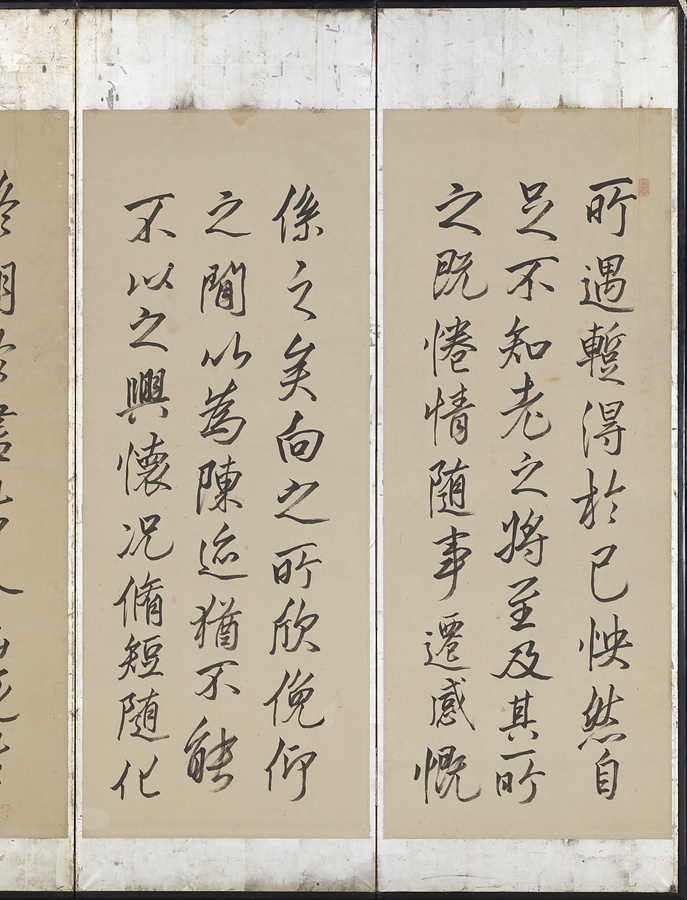 所遇蹔得於己怏然自
足不知老之將至及其所
之既惓情随事遷感慨
係之矣向之所欣俛仰
之間以為陳迹猶不能
不以之興懷况脩短随化